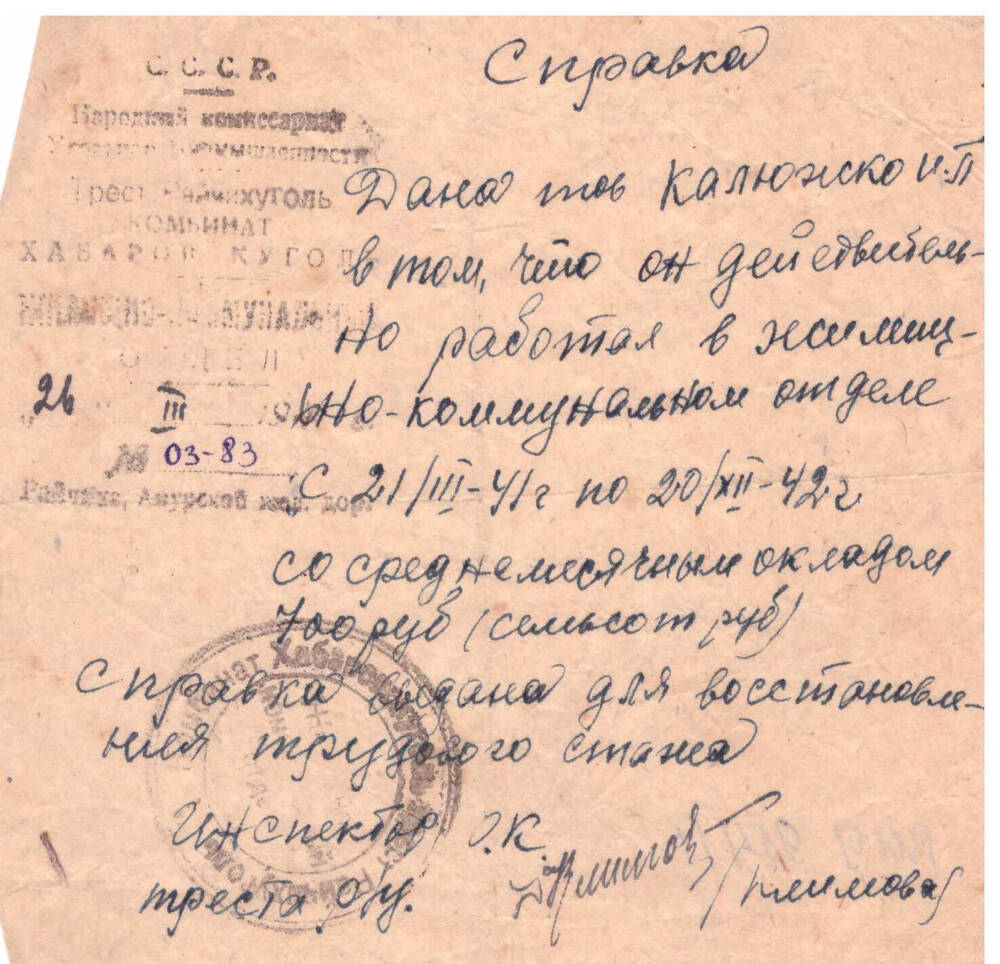 Справка
С. С. С. Р.
Народный комиссариат
Угольной промышленности
Трест Райчихуголь
КОМБИНАТ
ХАБАРОВСКУГОЛЬ
ОТДЕЛ
"26" III 194
№ 03-83
Райчиха, Амурской жел. дор.
Дана тов Калюжко И.П
в том, что он действитель-
но работал в жилищ-
но-коммунальном отделе
с 21/III-41г по 20/XII-42г.
со среднемесячным окладом
700 руб (семьсот руб)
Справка выдана для восстановле-
ния трудового стажа
Инспектор О.К
треста
/Климова/